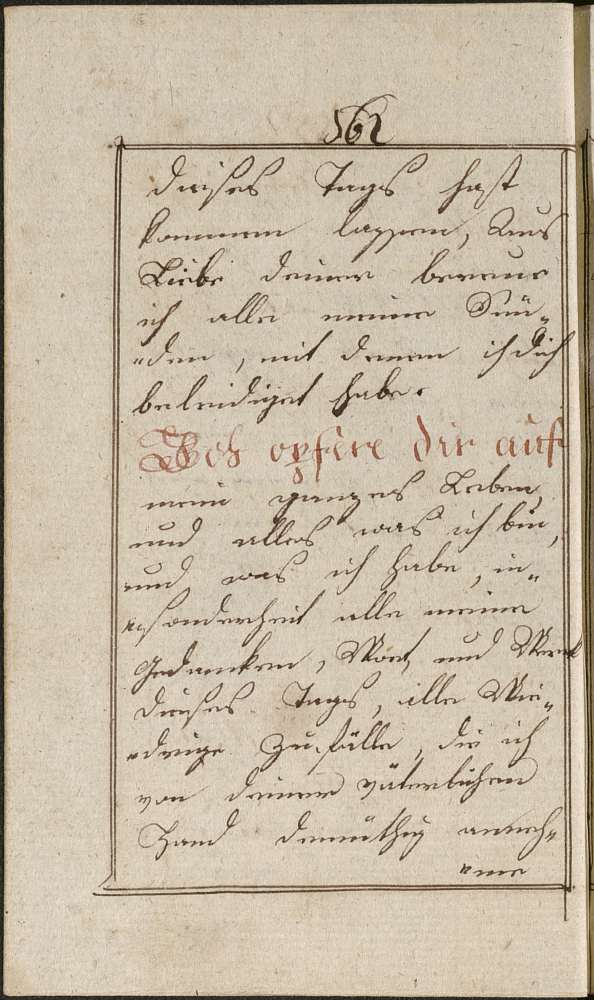 562
dieses Tags hast
kommen lassen, Aus
Liebe deiner bereue
ich alle meine Sün„
„den, mit denen ich dich
beleidiget habe.
Ich opfere dir auf
mein ganzes Leben,
und alles was ich bin,
und was ich habe, in„
„sonderheit alle meine
Gedancken, Wort, und Werck
dieses Tags, alle Wie„
„drige Zufälle, die ich
von deiner väterlichen
Hand demüthig anneh„
„me